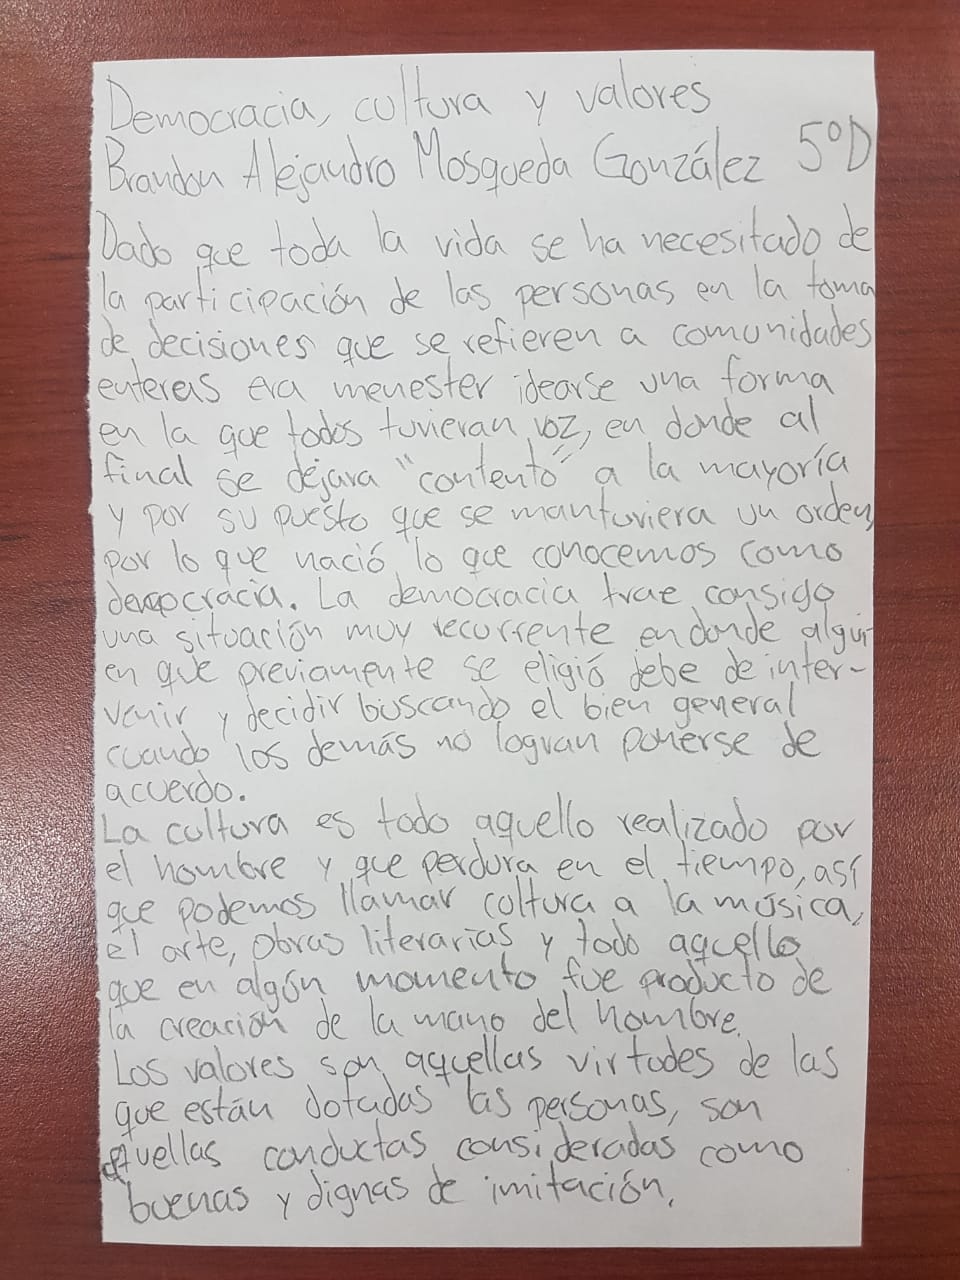 Democracia, cultura y valores
Brandon Alejandro Mosqueda González 5°D
Dado que toda la vida se ha necesitado de
la participación de las personas en la toma
de decisiones que se refieren a comunidades
enteras era menester idearse una forma
en la que todos tuvieran voz, en donde al
final se dejara "contento" a la mayoría
y por supuesto que se mantuviera un orden,
por lo que nació lo que conocemos como
democracia. La democracia trae consigo
una situación muy recurrente en donde algui
en que previamente se eligió debe de inter-
venir y decidir buscando el bien general
cuando los demás no logran ponerse de
acuerdo.
La cultura es todo aquello realizado por
el hombre y que perdura en el tiempo, así
que podemos llamar cultura a la música,
el arte, obras literarias y todo aquello
que en algún momento fue producto de
la creación de la mano del hombre.
Los valores son aquellas virtudes de las
que están dotadas las personas, son
aquellas conductas consideradas como
buenas y dignas de imitación.